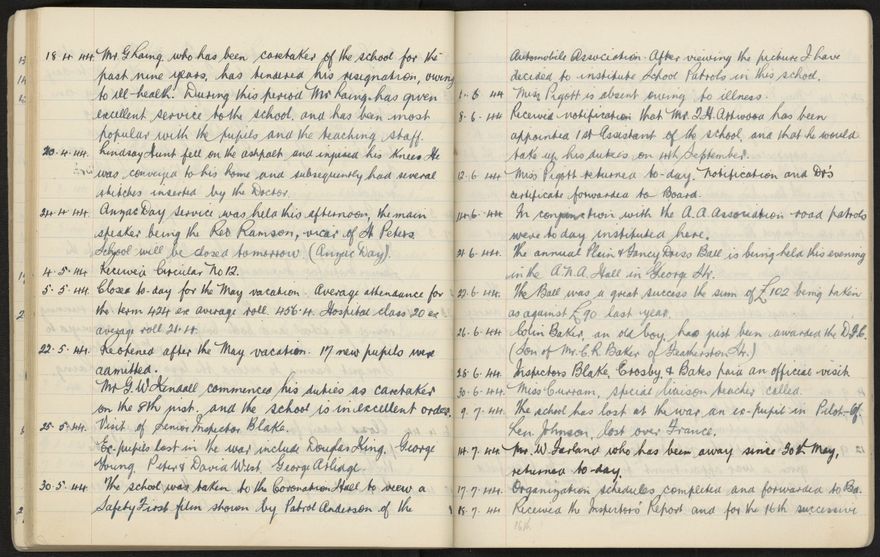 18.4.44. Mr G Laing, who has been caretaker of the school for the
past nine years, has tendered his resignation, owing
to ill-health. During this period Mr Laing has given
excellent service to the school, and has been most
popular with the pupils and the teaching staff.
20.4.44. Lindsay Hunt fell on the ashpalt and injured his knee. He
was conveyed to his home and subsequently had several
stitches inserted by the Doctor.
24.4.44. Anzac Day service was held this afternoon, the main
speaker being the Rev Ramson, vicar of St Peters.
School will be closed tomorrow (Anzac Day).
4.5.44. Received Circular No 12.
5.5.44. Closed to-day for the May vacation. Average attendance for
the term 424 ex average roll. 456.4. Hospital class 20 ex
average roll 21.4.
22.5.44. Reopened after the May vacation. 17 new pupils were
admitted.
Mr G.W. Kendall commenced his duties as caretaker
on the 8th inst. and the school is in excellent order.
25.5.44. Visit of Senior Inspector Blake.
Ex-pupils lost in the war include Douglas King, George
Young, Peter & David West, George
30.5.44. The school was taken to the Coronation Hall to view a
Safety First film shown by Patrol Anderson of the
Automobile Association. After viewing the picture I have
decided to institute School Patrols in this school.
1.6.44 Miss Pigott is absent owing to illness.
8.6.44 Received notification that Mr. J.H. Attwood has been
appointed 1st Assistant of the school, and that he would
take up his duties on 4th September.
12.6.44 Miss Pigott returned to-day. Notification and Dr's
certificate forwarded to Board.
14.6.44. In conjunction with the A.A. Association road patrols
were to day instituted here.
21.6.44. The annual Plain & Fancy Dress Ball is being held this evening
in the A.N.A. Hall in George Str.
22.6.44. The Ball was a great success the sum of £102 being taken
as against £90 last year.
26.6.44 Colin Baker, an old boy, has just been awarded the D.F.C.
(Son of Mr. C.R. Baker of Featherston Str.)
28.6.44 Inspectors Blake, Crosby & Bates paid an official visit
30.6.44. Miss Curram, special liaison teacher called.
9.7.44. The school has lost at the war an ex-pupil in Pilot-Of.
Len Johnson, lost over France.
14.7.44. Mr. W. Garland who has been away since 30th May,
returned to-day.
17.7.44. Organization schedules completed and forwarded to Bd.
18.7.44 Received the Inspector's Report and for the 16th successive
16th